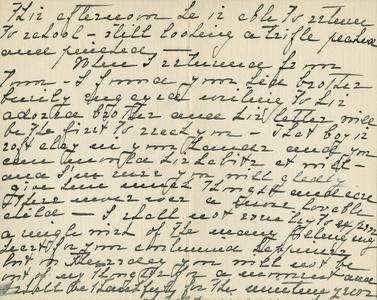 This afternoon he is able to return
to school - still looking a trifle peaked
and pinched -
When I returned from
town - I found your dear brother
busily engaged writing to his
adored brother and his letter will
be the first to reach you - That boy is
soft clay in your hands and you
can mould his habits at will -
and I'm sure you will gladly
give him much thought and care
There never was a more lovable
child - I shall not
a single mind of the many
for your continued happiness
but on Thursday you will not be
out of my thoughts for a moment and
I shall be thankful for the